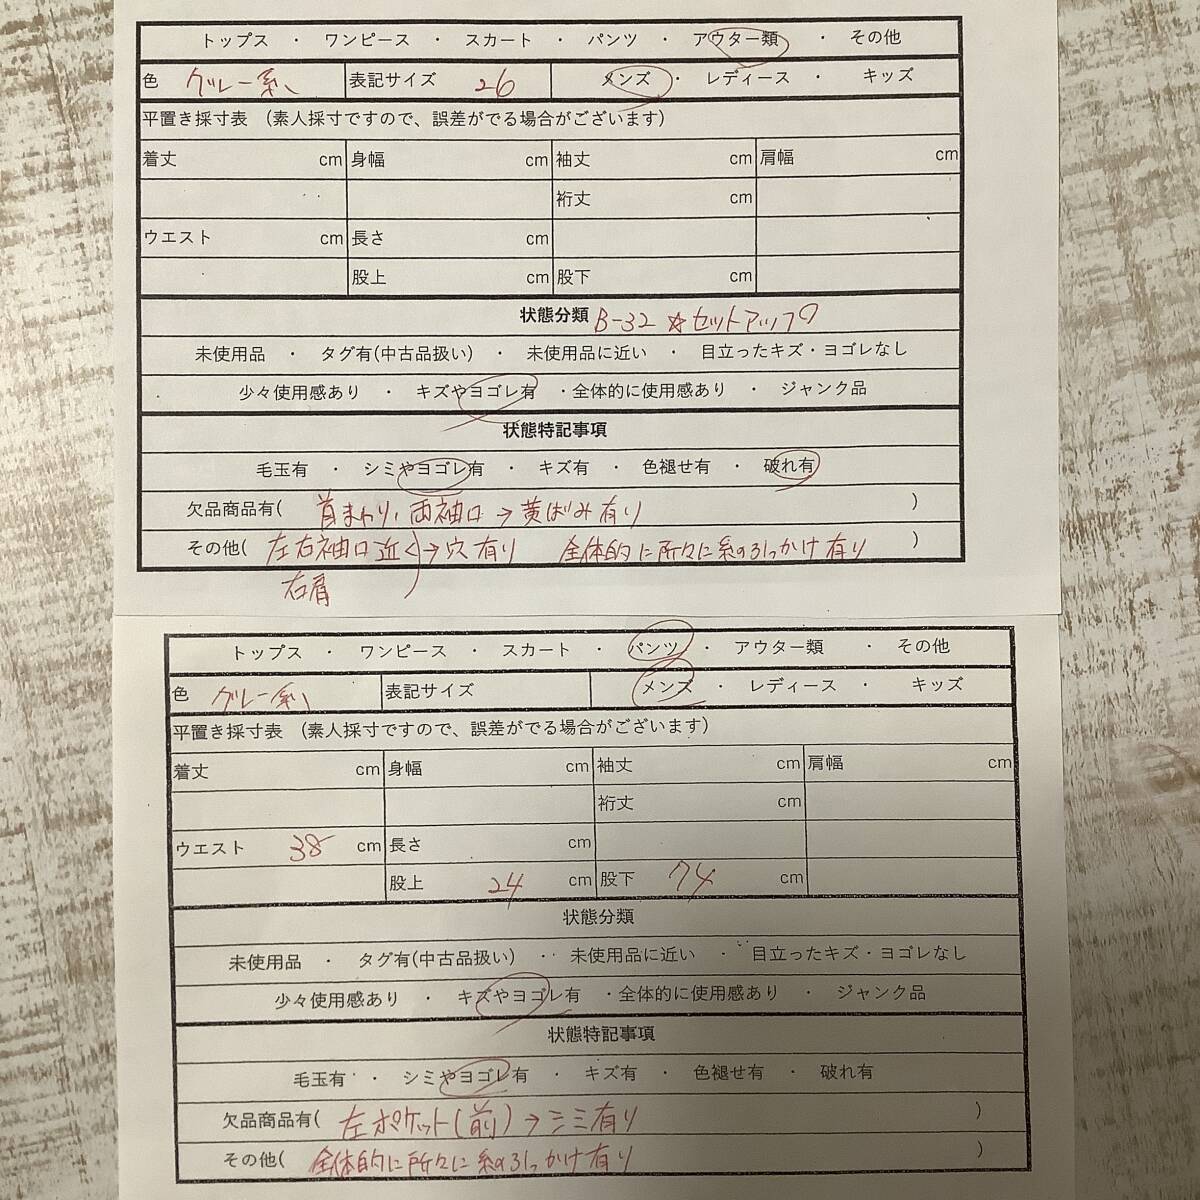 トップス ・ ワンピース ・ スカート ・ パンツ ・ アウター類 ・ その他
色 グレー系 表記サイズ 26 メンズ ・ レディース ・ キッズ
平置き採寸表 (素人採寸ですので、誤差がでる場合がございます)
着丈 cm 身幅 cm 袖丈 cm 肩幅 cm
裄丈 cm
ウエスト cm 長さ cm
股上 cm 股下 cm
状態分類 B-32 ☆セットアップ
未使用品 ・ タグ有(中古品扱い) ・ 未使用品に近い ・ 目立ったキズ・ヨゴレなし
少々使用感あり ・ キズやヨゴレ有 ・全体的に使用感あり ・ ジャンク品
状態特記事項
毛玉有 ・ シミやヨゴレ有 ・ キズ有 ・ 色褪せ有 ・ 破れ有
欠品商品有( 首まわり、両袖口→黄ばみ有り )
その他( 左右袖口近く→穴有り 全体的に所々に糸の引っかけ有り )
右肩
トップス ・ ワンピース ・ スカート ・ パンツ ・ アウター類 ・ その他
色 グレー系 表記サイズ メンズ ・ レディース ・ キッズ
平置き採寸表 (素人採寸ですので、誤差がでる場合がございます)
着丈 cm 身幅 cm 袖丈 cm 肩幅 cm
裄丈 cm
ウエスト 38 cm 長さ cm
股上 24 cm 股下 74 cm
状態分類
未使用品 ・ タグ有(中古品扱い) ・ 未使用品に近い ・ 目立ったキズ・ヨゴレなし
少々使用感あり ・ キズやヨゴレ有 ・全体的に使用感あり ・ ジャンク品
状態特記事項
毛玉有 ・ シミやヨゴレ有 ・ キズ有 ・ 色褪せ有 ・ 破れ有
欠品商品有( 左ポケット(前)→シミ有り )
その他( 全体的に所々に糸の引っかけ有り )